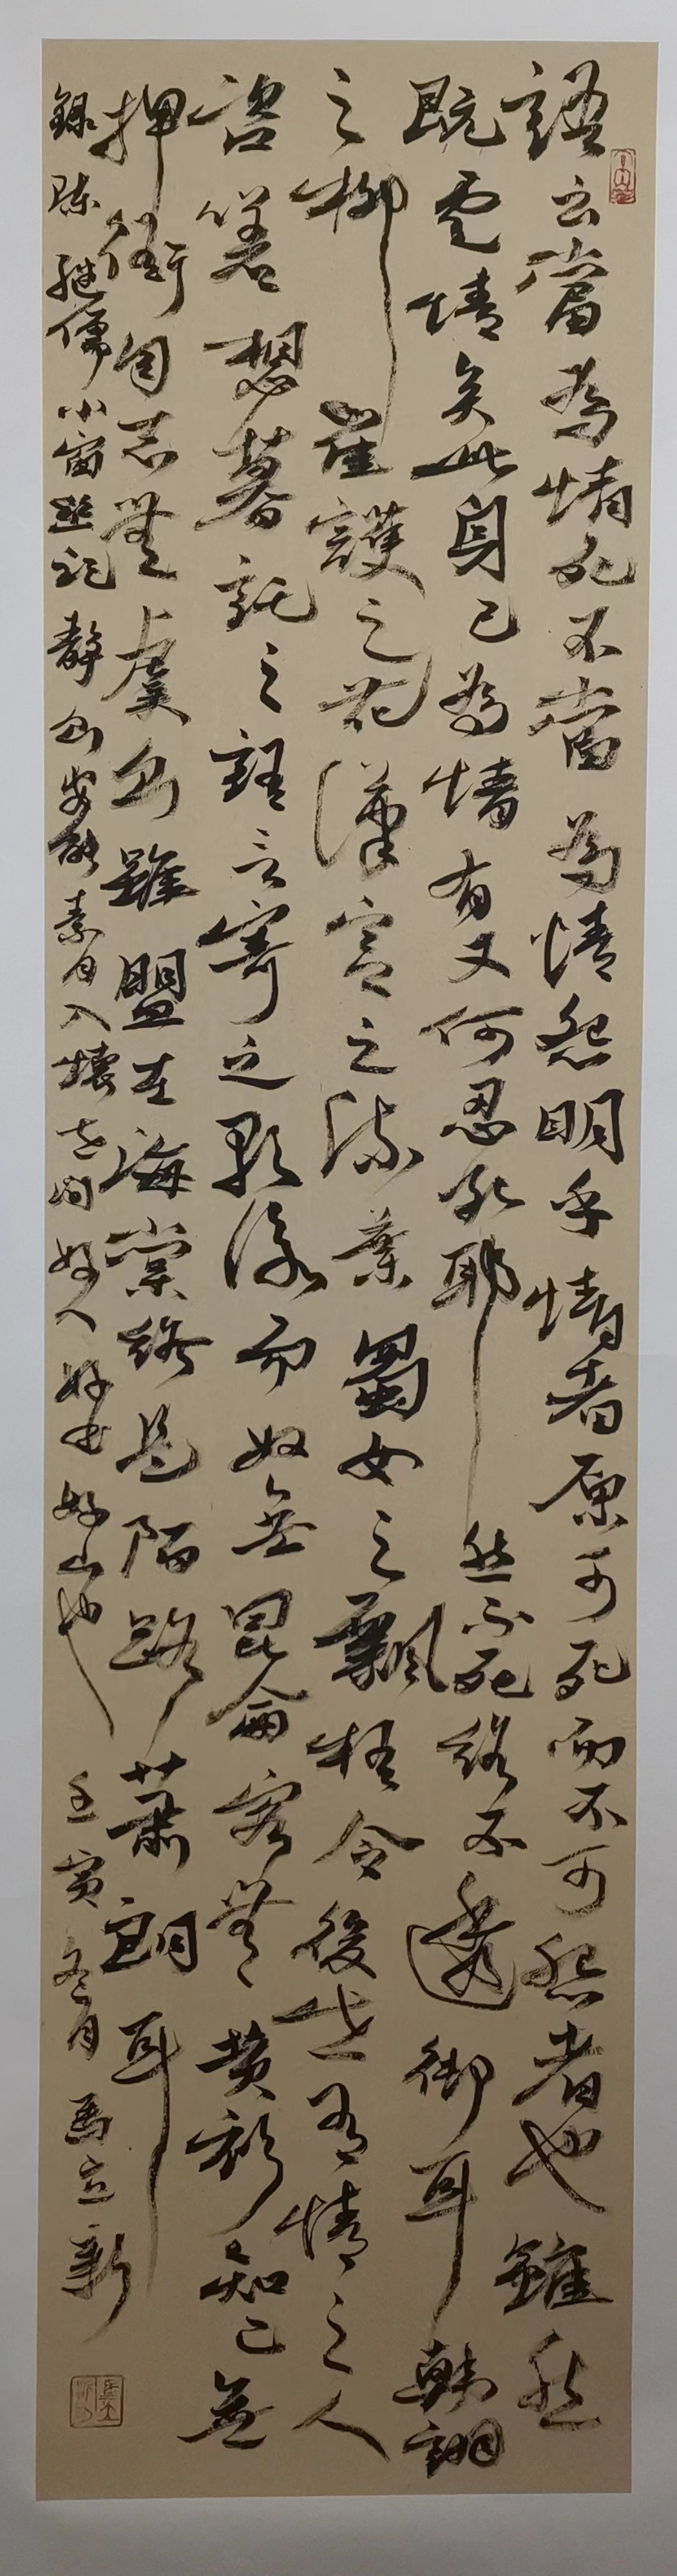 語云當為情死不當為情怨明乎情者原可死而不可怨者也雖然
既雲情矣此身已為情有又何忍死耶然不死終不透徹耳韓翃
之柳崔護之花漢宮之流葉蜀女之飄梧令後世有情之人
咨嗟想慕託之語言寄之歌詠而奴無昆侖客無黃衫知己無
押衙同志無虞雖盟在海棠終是陌路蕭郎耳
錄陳繼儒小窗幽記靜安能素月入懷間好人好書好山也 壬寅冬月馬立新